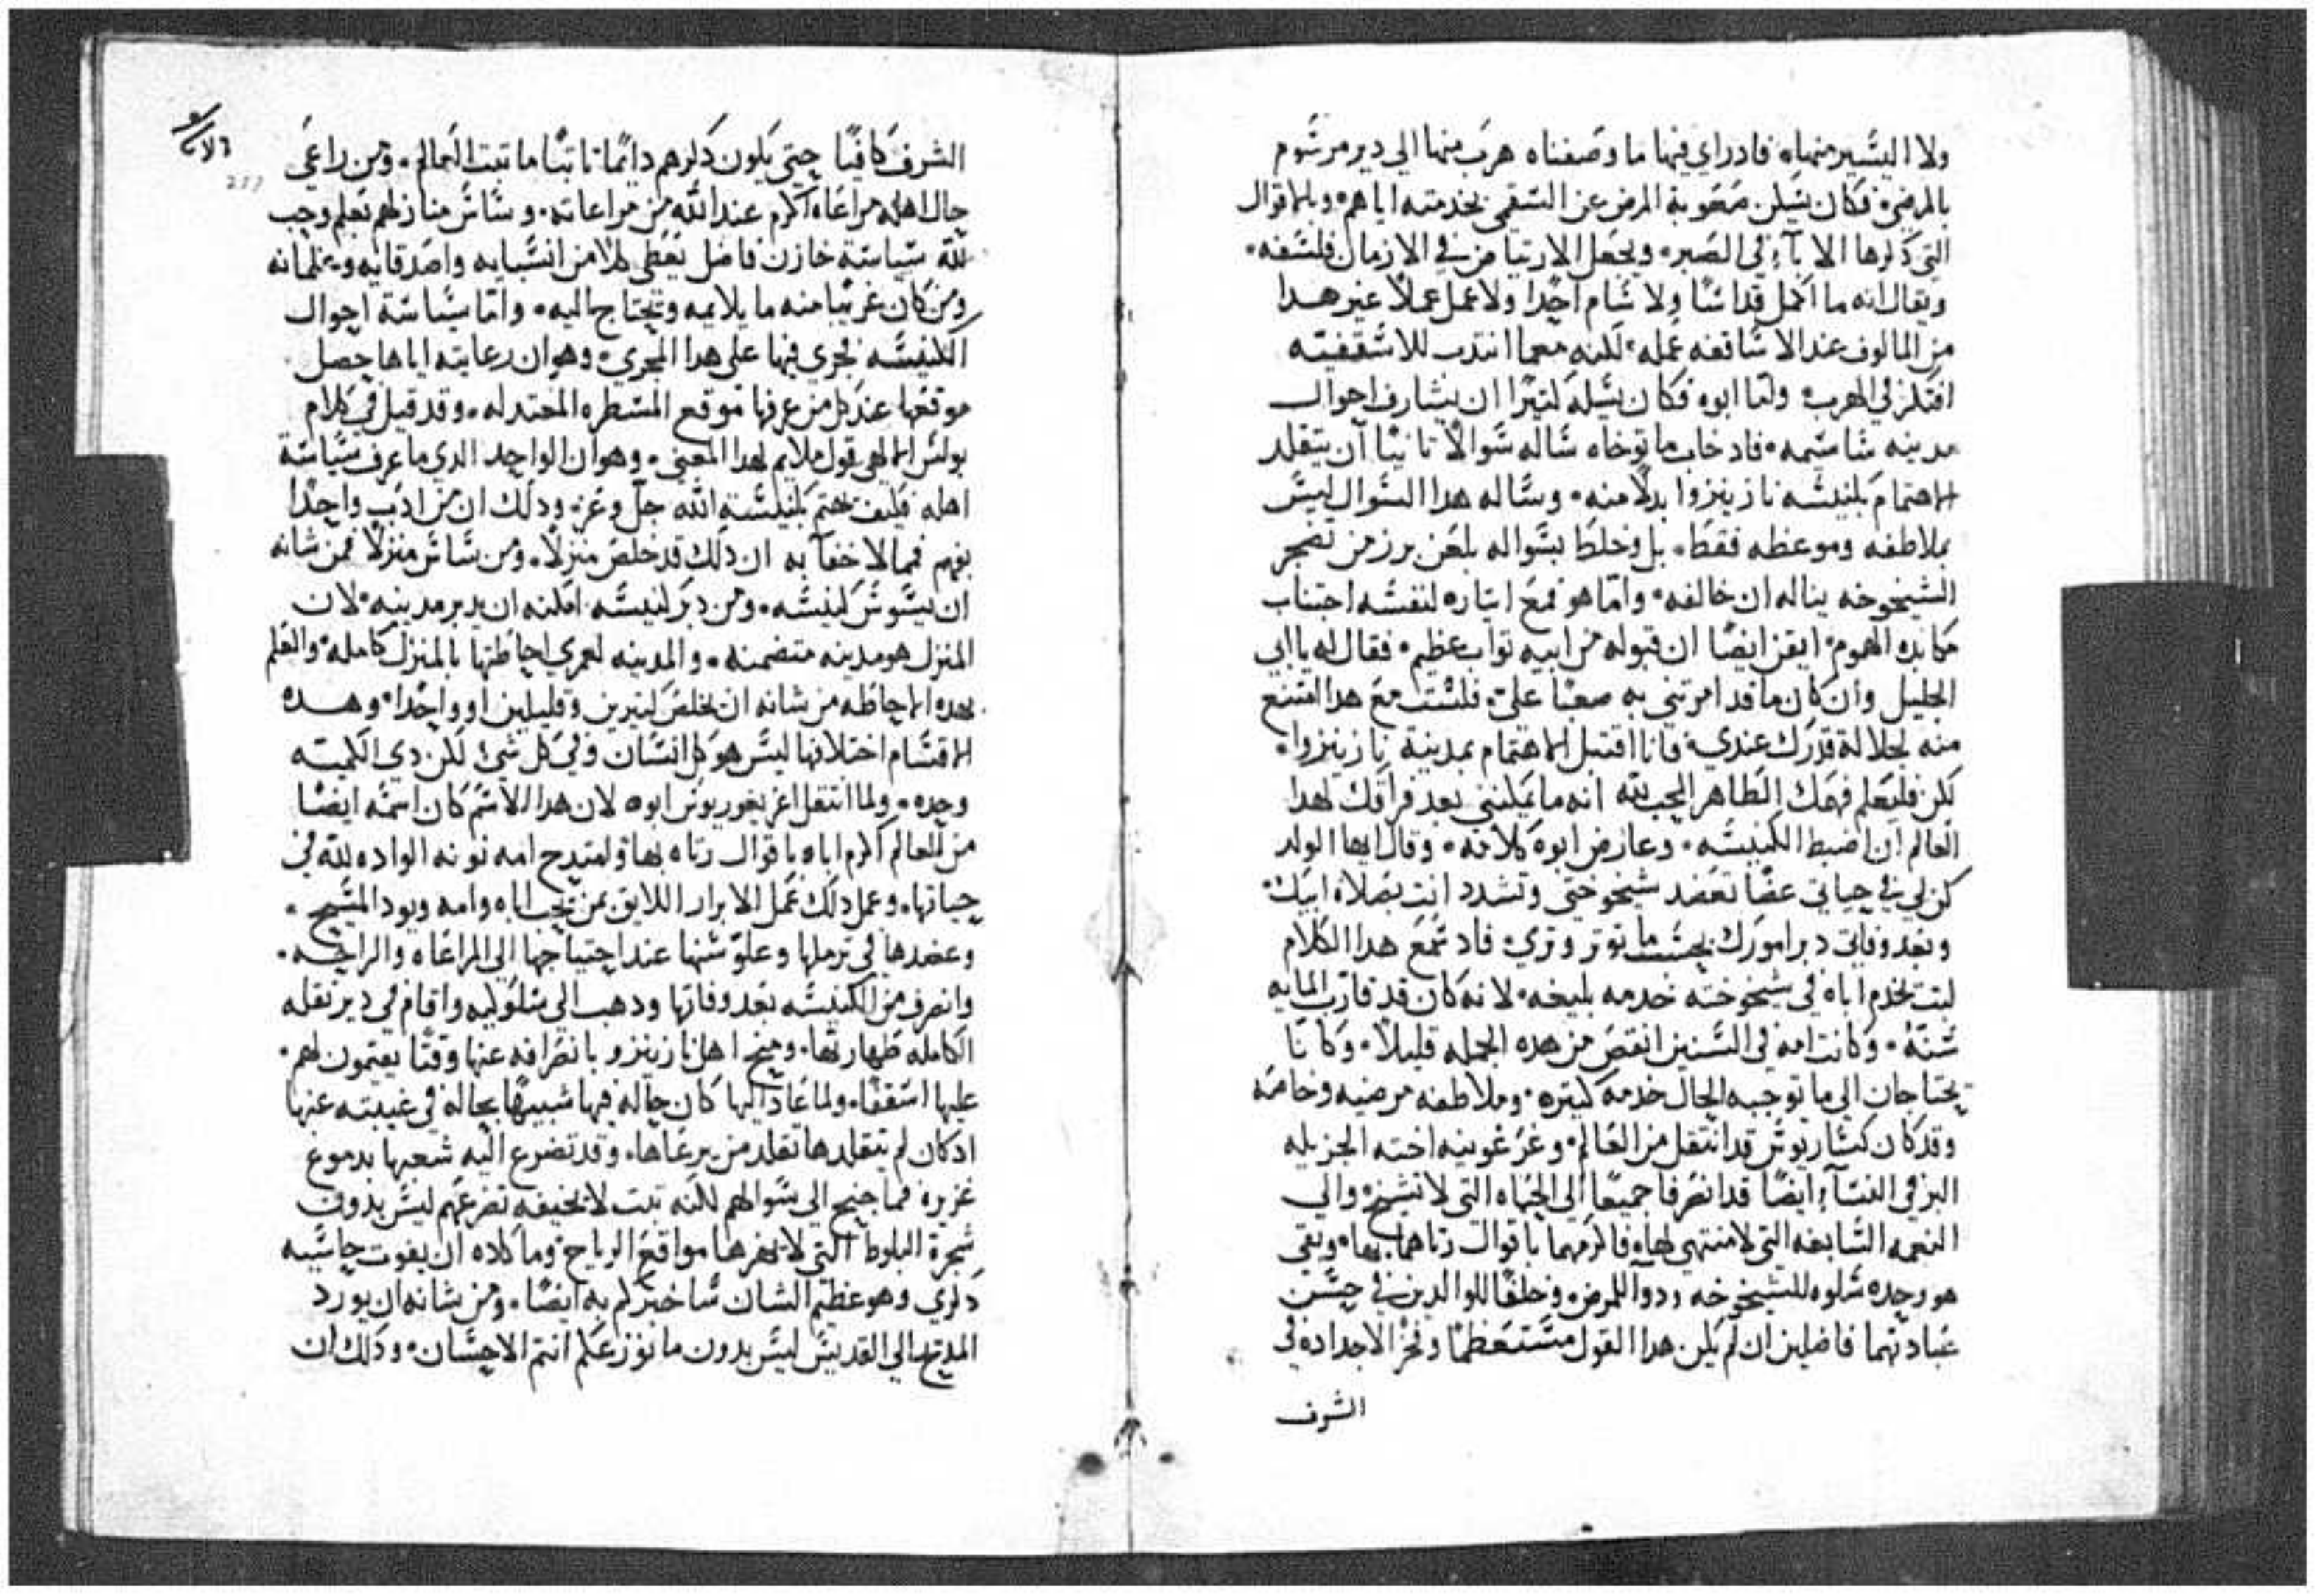 ولا اليسير منها فاد راي فيها ما وصفناه هرب منها الي دير مرسوم
بالمرضي فكان يسكن صعوبة المرض عن السقمي بخدمته اياهم وبالاقوال
التي ذكرها الاباء في الصبر ويجعل الارتياض في الازمان فلسفه
ويقال انه ما اكمل قداسًا ولا شام احدًا ولا عمل عملاً غير هدا
من المالوف عند الاساقفه عمله لكنه معما انتدب للاسقفيته
افتكر في الهرب ولما ابوه فكان يسله كتيرًا ان يشارف احوال
مدينه ساسيمه فاد خاب ما توخاه ساله سوالاً تانيًا ان يتقلد
الاهتمام بكنيسه نازينزوا بدلاً منه وساله هدا السوال ليس
بملاطفه وموعظه فقط بل وخلط بسواله بلعن برز من تضجر
الشيخوخه يناله ان خالفه واما هو فمع ايتاره لنفسه اجتناب
مكابده الهموم ايقن ايضًا ان قبوله من ابيه تواب عظيم فقال له يا ابي
الجليل وان كان ما قد امرتني به صعبًا علي فلست مع هدا امتنع
منه لجلالة قدرك عندي فانا اقتبل الاهتمام بمدينة نازينزوا
لكن فليعلم فهمك الطاهر المحب لله انه ما يمكنني بعد فراقك لهدا
العالم ان اضبط الكنيسه وعارض ابوه كلامه وقال ايها الولد
كن لي في حياتي عصًا تعضد شيخوختي وتشدد انت بصلاة ابيك
وبعد وفاتي دبر امورك بحسب ما توتر وتري فاد سمع هدا الكلام
لبت يخدم اباه في شيخوخته خدمه بليغه لانه كان قد قارب المايه
سنة وكانت امه في السنين انقص من هده الجمله قليلاً وكانا
يحتاجان الي ما توجبه الحال خدمه كتيره وملاطفه مرضيه وخاصه
وقد كان كساريوس قد انتقل من العالم وغرغونيه اخته الجزيله
البر في النساء ايضًا قد انصرفا جميعًا الي الحياه التي لا تشيخ والي
النعمه السابغه التي لا منتهي لها فاكرمهما باقوال رتاهما بها وبقي
هو وحده سلوه للشيخوخه ودوا للمرض وخلفًا للوالدين في حسن
عبادتهما فاضلين ان لم يكن هدا القول مستعظمًا وفخر الاجداد في
الشرف
الشرف كافيًا حتي يكون دكرهم دايمًا تابتًا ما تبت العالم ومن راعي
حال اهله مراعاه اكرم عند الله من مراعاته وساس منازلهم تعلم وجب
لله سياسة خازن فاضل يعطي كلا من انسبايه واصدقايه وغلمانه
ومن كان غريبًا منه ما يلايمه ويحتاج اليه واما سياسة احوال
الكنيسه فجري فيها علي هدا المجري وهو ان رعايته اياها حصل
موقعها عند كل من عرفها موقع المسطره المعتدله وقد قيل في كلام
بولس الالهي قول ملايم لهدا المعني وهو ان الواحد الدي ما عرف سياسة
اهله فكيف يهتم بكنيسة الله جل وعز ودلك ان من ادب واحدًا
بفهم فمما لا خفآ به ان دلك قد خلص منزلاً ومن ساس منزلاً فمن شانه
ان يسوس كنيسه ومن دبر كنيسه امكنه ان يدبر مدينه لان
المنزل هو مدينه متضمنه والمدينه لعمري احاطتها بالمنزل كامله والعلم
بهده الاحاطه من شانه ان يخلص كتيرين وقليلين او واحدًا وهده
الاقسام اختلافها ليس هو كل انسان وفي كل شي لكن دي الكميه
وحده ولما انتقل اغريغوريوس ابوه لان هدا الاسم كان اسمه ايضًا
من العالم اكرم اباه باقوال رتاه بها وامتدح امه نونه الواده لله في
حياتها وعمل دلك عمل الابرار اللايق بمن يحب اباه وامه ويود المسيح
وعضدها في ترملها وعلو سنها عند احتياجها الي المراعاه والراحه
وانصرف من الكنيسه بعد وفاتها ودهب الي سلوكيه واقام في دير تقله
الكامله طهارتها ومنح اهل نازينزو بانصرافه عنها وقتًا يعتمون لهم
عليها اسقفًا ولما عاد اليها كان حاله فيها شبيهًا بحاله في غيبته عنها
ادكان لم يتقلدها تقلد من يرعاها وقد تضرع اليه شعبها بدموع
غزيره فما جنح الي سوالهم لكنه تبت لا يخيفه تضرعهم ليس بدون
شجرة البلوط التي لا يهزها مواقع الرياح وما كاده ان يفوت حاشيه
دكري وهو عظيم الشان ساخبركم به ايضًا ومن شانه ان يورد
المديح الي القديس ليس بدون ما نوزعكم انتم الاحسان ودلك ان